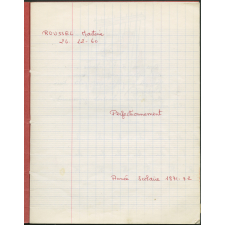 ROUSSEL Martine
26 - 12 - 60
Perfectionnement
Année Scolaire 1971.72